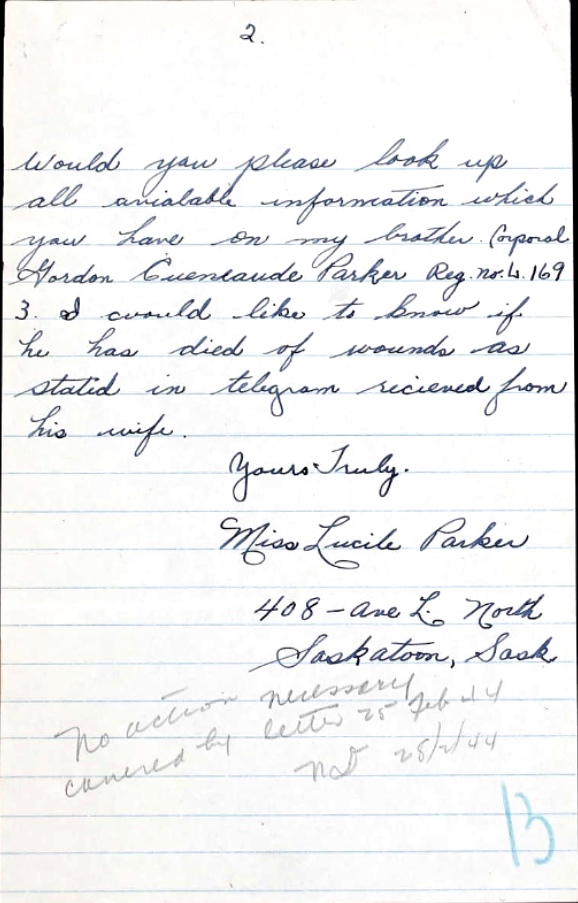 2.
Would you please look up
all avialable information which
you have on my brother. Corporal
Gordon Parker Reg. no. L. 169
3. I would like to know if
he has died of wounds as
stated in telegram recieved from
his wife.
Yours Truly.
Miss Lucile Parker
408 – Ave L. North
Saskatoon, Sask
No action necessary
covered by letter 25 Feb 44
28/2/44
13